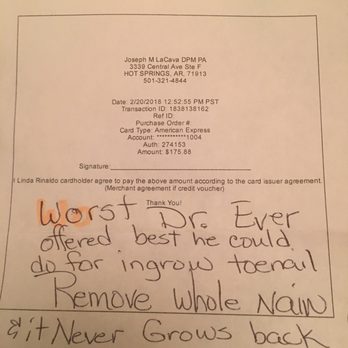 Joseph M LaCava DPM PA
3339 Central Ave Ste.F
HOT SPRINGS, AR, 71913
501-321-4844
Date: 2/20/2018 12:52:55 PM PST
Transaction ID: 1838138162
Ref ID:
Purchase Order #:
Card Type: American Express
Account: ***********1004
Auth: 274153
Amount: $175.88
Signature:
I Linda Rinaldo cardholder agree to pay the above amount according to the card issuer agreement.
(Merchant agreement if credit voucher)
Thank You!
Worst Dr. Ever
offered best he could
do for ingrow toenail
Remove whole Nain
& it Never Grows back